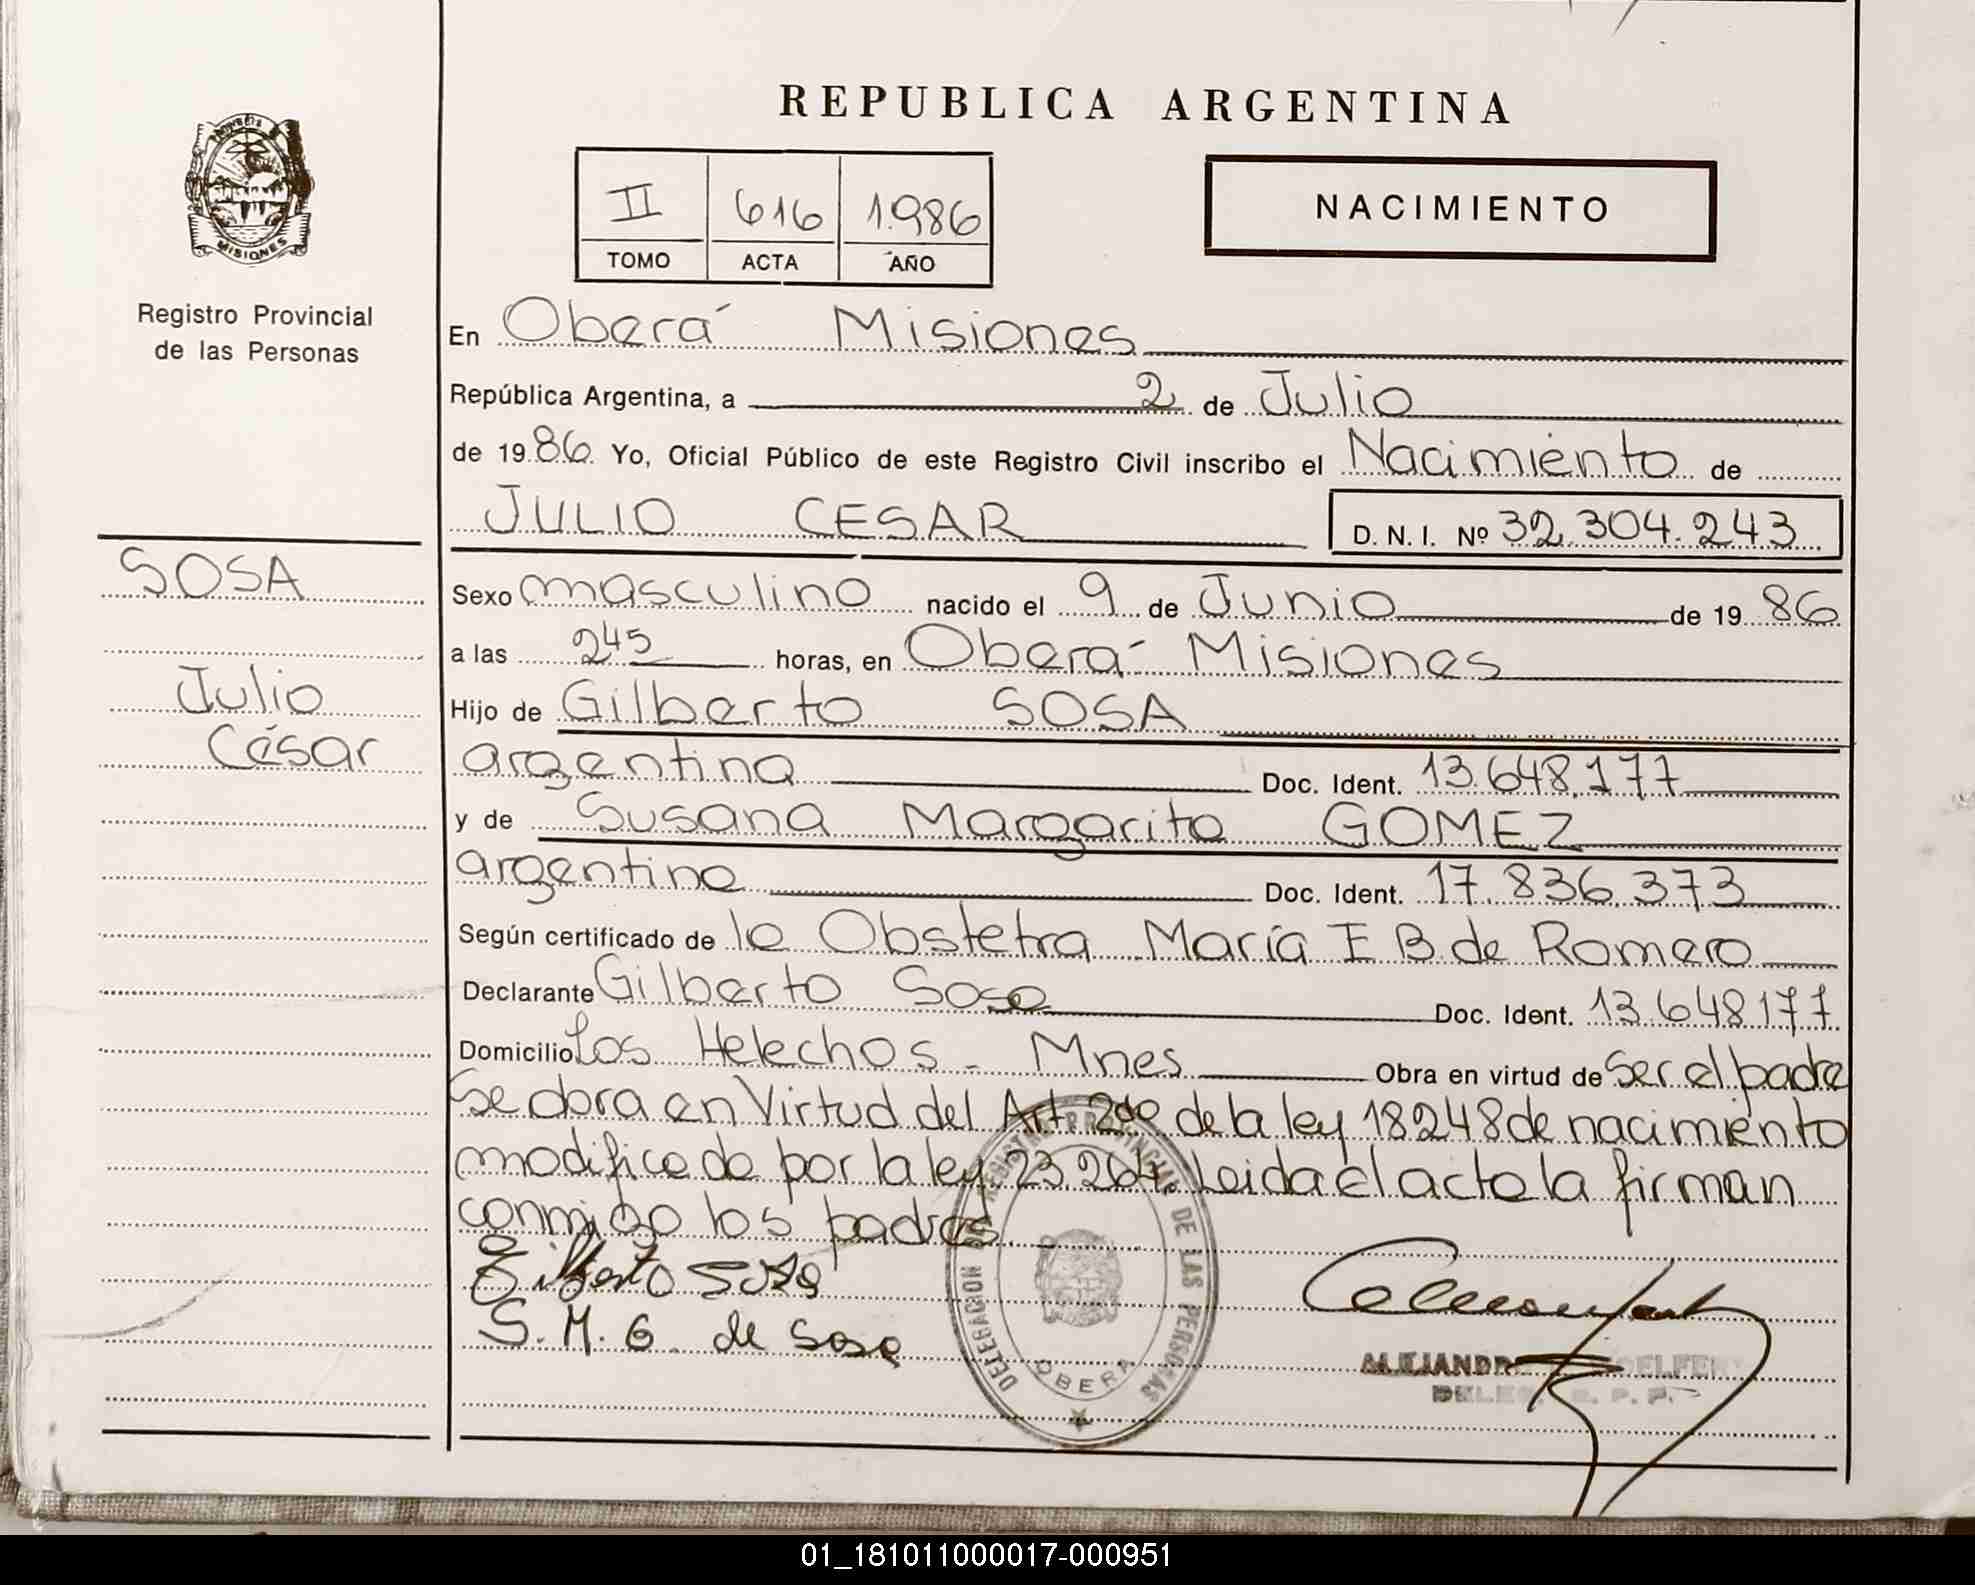 REPUBLICA ARGENTINA
PROVINCIA
MISIONES
Registro Provincial
de las Personas
II 616 1.986
TOMO ACTA AÑO
NACIMIENTO
En Oberá Misiones
República Argentina, a 2 de Julio
de 1986 Yo, Oficial Público de este Registro Civil inscribo el Nacimiento de
JULIO CESAR D. N. I. Nº 32.304.243
SOSA
Julio
César
Sexo masculino nacido el 9 de Junio de 1986
a las 245 horas, en Oberá Misiones
Hijo de Gilberto SOSA
argentina Doc. Ident. 13.648.177
y de Susana Margarita GOMEZ
argentina Doc. Ident. 17.836.373
Según certificado de la Obstetra María E B. de Romero
Declarante Gilberto Sosa Doc. Ident. 13.648177
Domicilio Los Helechos - Mnes Obra en virtud de ser el padre
Se obra en Virtud del Art. 2do de la ley 18248 de nacimiento
modificado por la ley 23.264. Leida el acta la firman
conmigo los padres.
Gilberto Sosa
S. M. G. de Sosa
DELEGACION REGISTRO PROVINCIAL DE LAS PERSONAS
OBERA
01_181011000017-000951